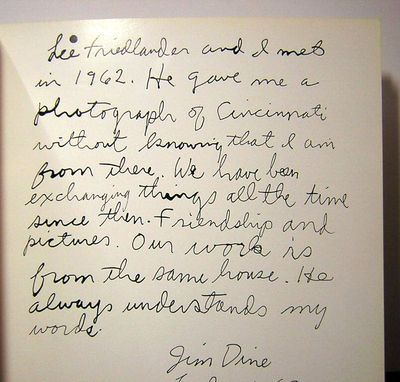 Lee Friedlander and I met
in 1962. He gave me a
photograph of Cincinnati
without knowing that I am
from there. We have been
exchanging things all the time
since then. Friendship and
pictures. Our work is
from the same house. He
always understands my
words.
Jim Dine